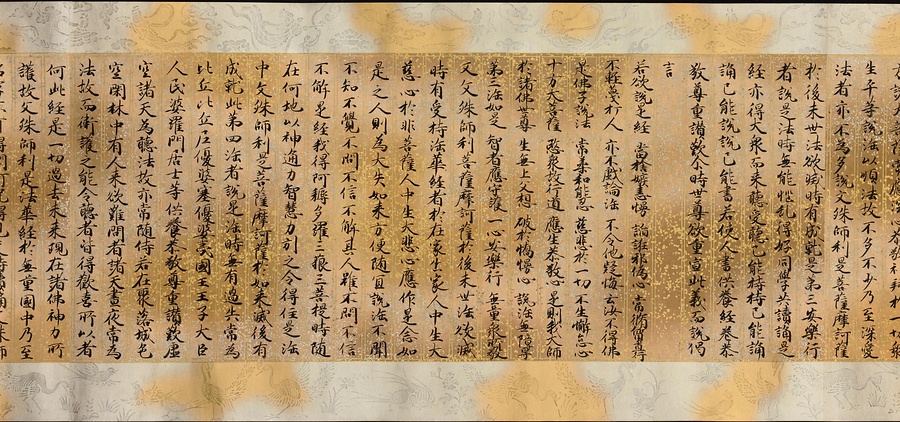 生平等說法以順法故不多不少乃至深愛
法者亦不為多說文殊師利是菩薩摩訶薩
於後末世法欲滅時有成就是第三安樂行
者說是法時無能惱亂得好同學共讀誦是
經亦得大眾而來聽受聽已能持持已能誦
誦已能說說已能書若使人書供養經卷恭
敬尊重讚歎尒時世尊欲重宣此義而說偈
言
若欲說是經 當捨嫉恚慢 諂誑邪偽心 常脩質直行
不輕蔑於人 亦不戲論法 不令他疑悔 云汝不得佛
是佛子說法 常柔和能忍 慈悲於一切 不生懈怠心
十方大菩薩 愍眾故行道 應生恭敬心 是則我大師
於諸佛世尊 生無上父想 破於憍慢心 說法無障导
第三法如是 智者應守護 一心安樂行 無量眾所敬
又文殊師利菩薩摩訶薩於後末世法欲滅
時有受持法華經者於在家出家人中生大
慈心於非菩薩人中生大悲心應作是念如
是之人則為大失如來方便隨宜說法不聞
不知不覺不問不信不解其人雖不問不信
不解是經我得阿耨多羅三藐三菩提時隨
在何地以神通力智慧力引之令得住是法
中文殊師利是菩薩摩訶薩於如來滅後有
成就此第四法者說是法時無有過失常為
比丘比丘尼優婆塞優婆夷國王王子大臣
人民婆羅門居士等供養恭敬尊重讚歎虛
空諸天為聽法故亦常隨侍若在聚落城邑
空閑林中有人來欲難問者諸天晝夜常為
法故而衛護之能令聽者皆得歡喜所以者
何此經是一切過去未來現在諸佛神力所
護故文殊師利是法華經於無量國中乃至